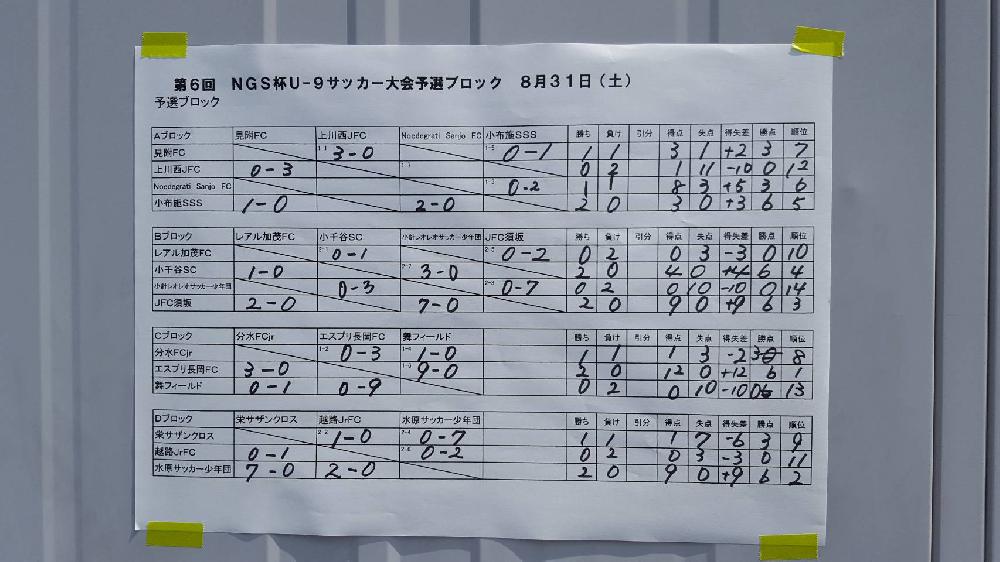 第6回 NGS杯U-9サッカー大会予選ブロック 8月31日(土)
予選ブロック
Aブロック 見附FC 上川西JFC Noedegrati Sanjo FC 小布施SSS 勝ち 負け 引分 得点 失点 得失差 勝点 順位
見附FC 3-0 0-1 1 1 3 1 +2 3 7
上川西JFC 0-3 0 2 1 11 -10 0 12
Noedegrati Sanjo FC 0-2 1 1 8 3 +5 3 6
小布施SSS 1-0 2-0 2 0 3 0 +3 6 5
Bブロック レアル加茂FC 小千谷SC 小針レオレオサッカー少年団 JFC須坂 勝ち 負け 引分 得点 失点 得失差 勝点 順位
レアル加茂FC 0-1 0-2 0 2 0 3 -3 0 10
小千谷SC 1-0 3-0 2 0 4 0 +4 6 4
小針レオレオサッカー少年団 0-3 0-7 0 2 0 10 -10 0 14
JFC須坂 2-0 7-0 2 0 9 0 +9 6 3
Cブロック 分水FCjr エスプリ長岡FC 舞フィールド 勝ち 負け 引分 得点 失点 得失差 勝点 順位
分水FCjr 0-3 1-0 1 1 1 3 -2 3 8
エスプリ長岡FC 3-0 9-0 2 0 12 0 +12 6 1
舞フィールド 0-1 0-9 0 2 0 10 -10 0 13
Dブロック 栄サザンクロス 越路JrFC 水原サッカー少年団 勝ち 負け 引分 得点 失点 得失差 勝点 順位
栄サザンクロス 1-0 0-7 1 1 1 7 -6 3 9
越路JrFC 0-1 0-2 0 2 0 3 -3 0 11
水原サッカー少年団 7-0 2-0 2 0 9 0 +9 6 2